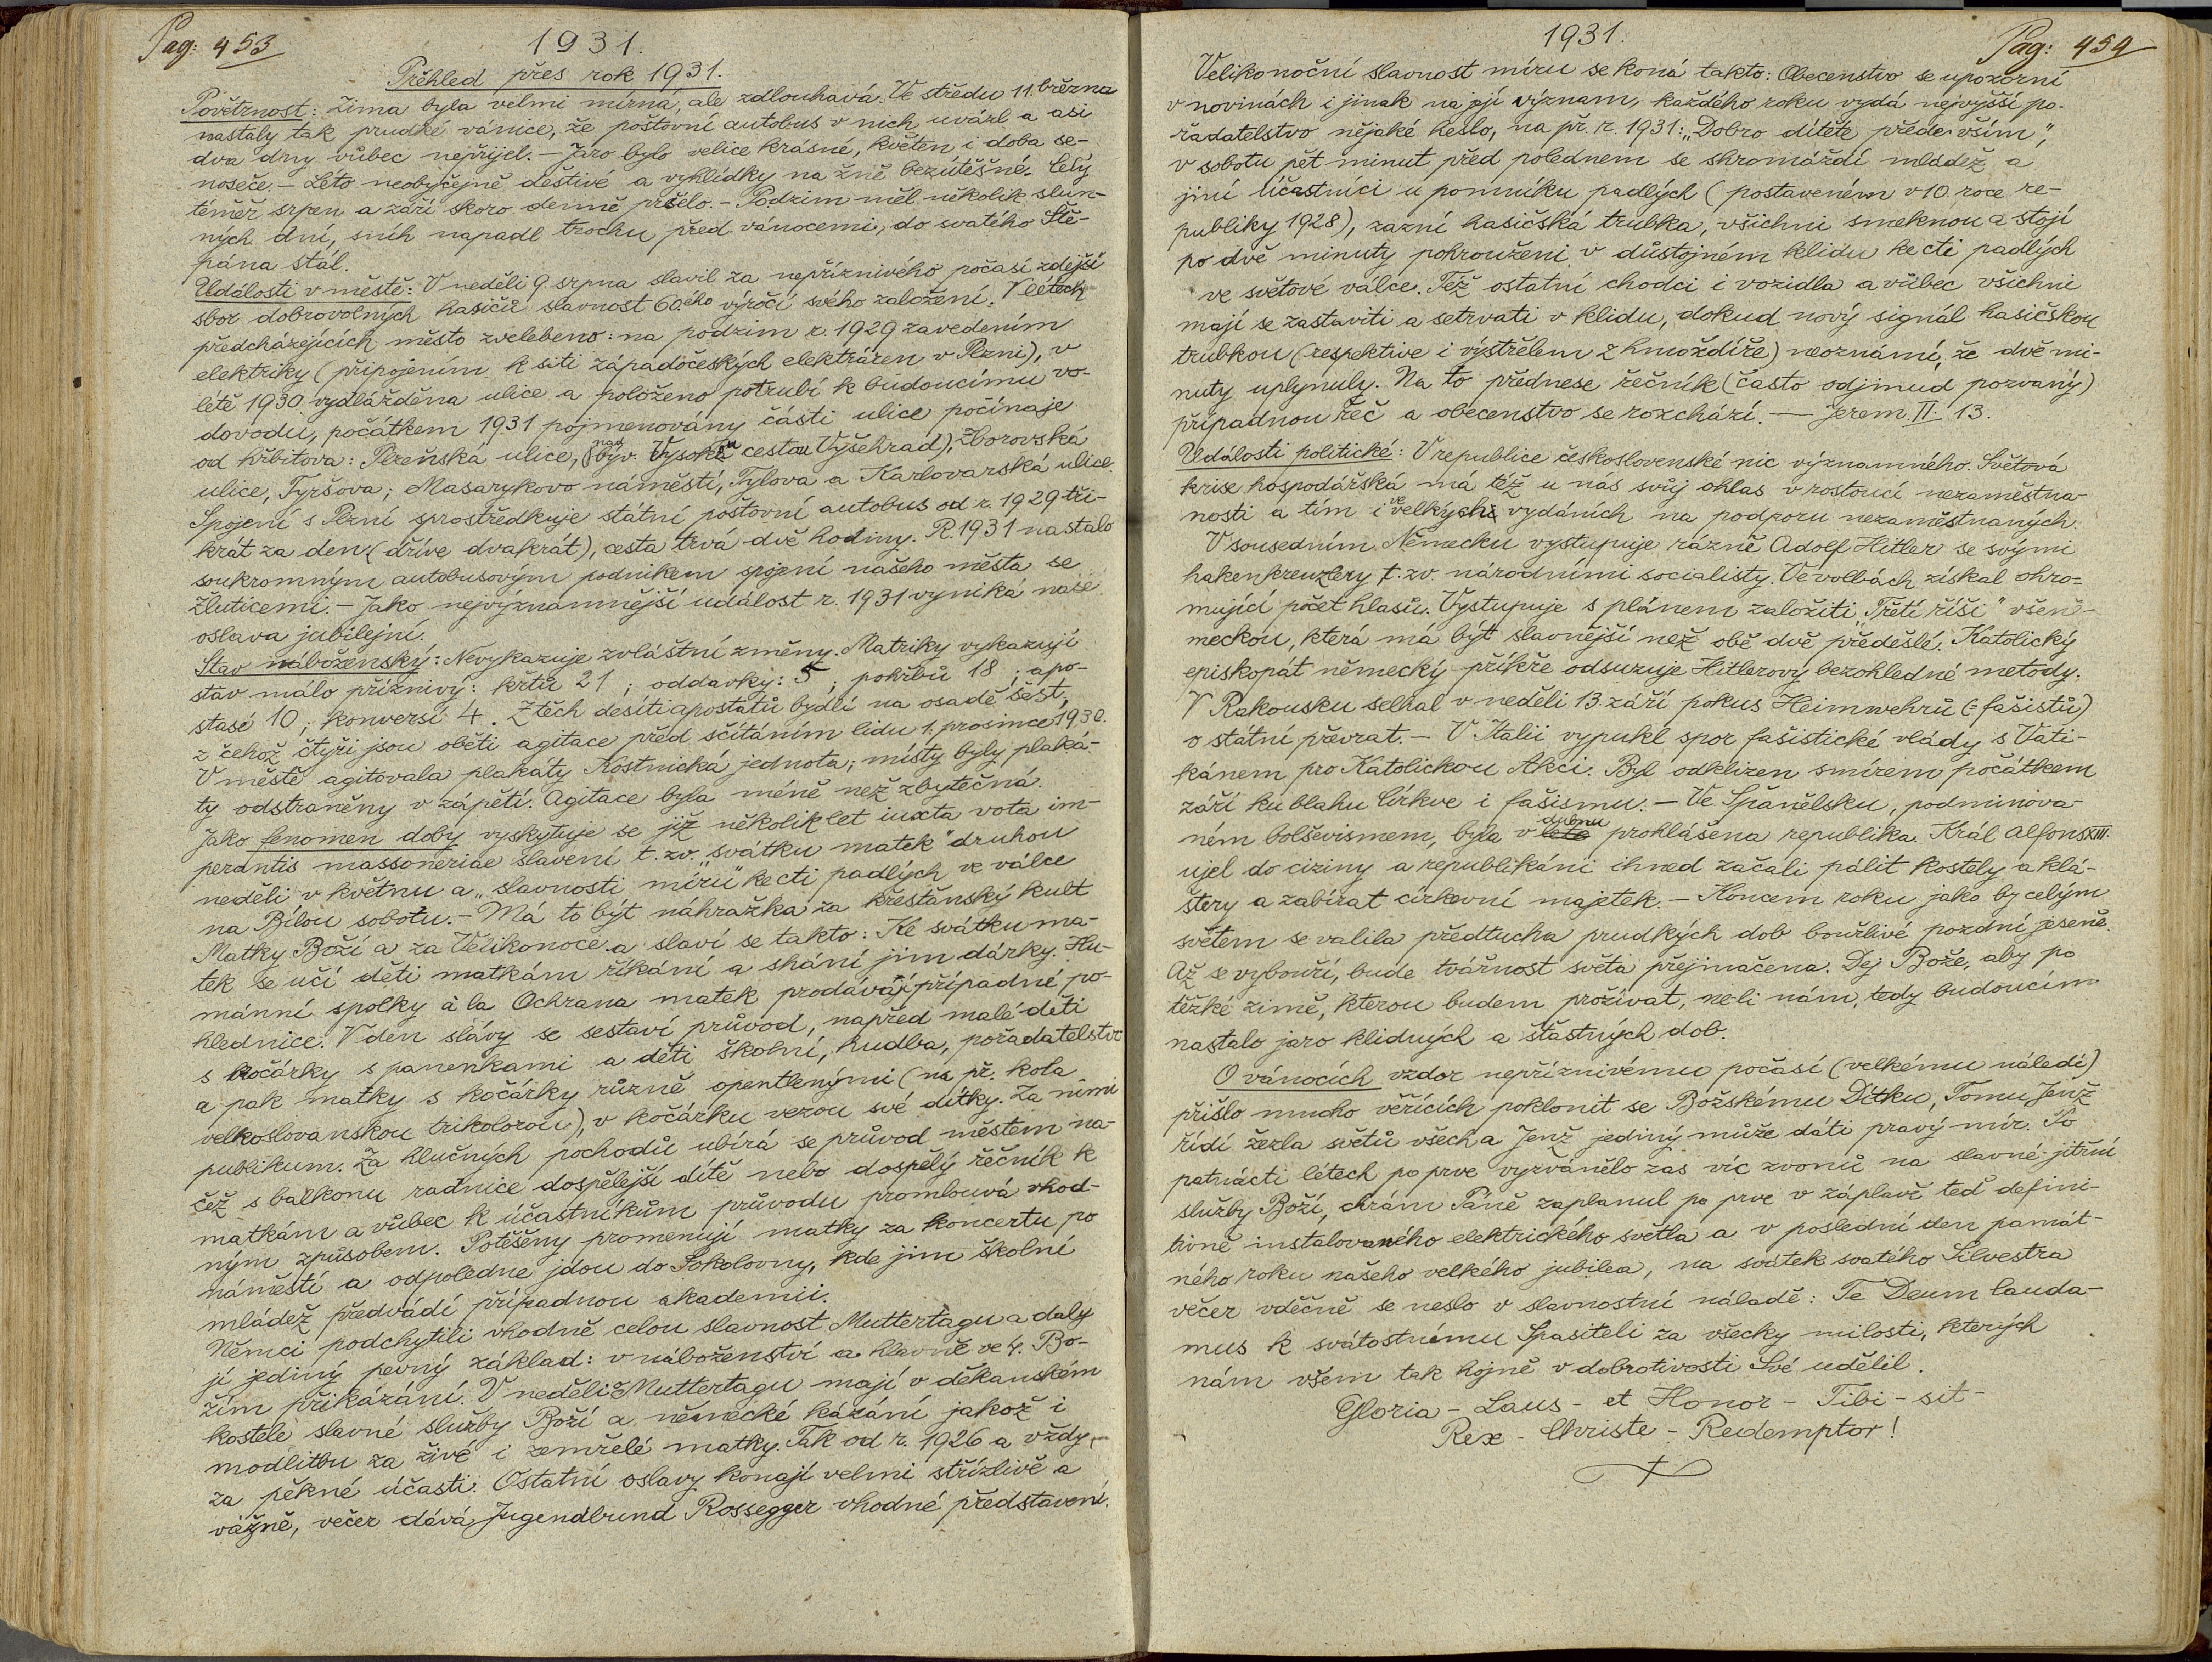 Pag: 453
1931.
Přěhled přes rok 1931.
Povětrnost: Zima byla velmi mírná, ale zdlouhavá. Ve středu 11. března
nastaly tak prudké vánice, že poštovní autobus v nich uvázl a asi
dva dny vůbec nepřijel. – Jaro bylo velice krásné, květen i doba se-
noseče. – Léto neobyčejně deštivé a vyhlídky na žně bezútěšné. Celý
téměř srpen a září skoro denně pršelo. – Podzim měl několik slun-
ných dní, sníh napadl trochu před vánocemi, do svatého Ště-
pána stál.
Události v městě: V neděli 9. srpna slavil za nepříznivého počasí zdejší
sbor dobrovolných hasičů slavnost 60.ého výročí svého založení. V létech
předcházejících město zvelebeno: na podzim r. 1929 zavedením
elektriky (připojením k síti západočeských elektráren v Plzni), v
létě 1930 vydlážděna ulice a položeno potrubí k budoucímu vo-
dovodu, počátkem 1931 pojmenovány části ulice počínaje
od hřbitova: Plzeňská ulice, (nad býv. Vysokou cestou Vyšehrad), Zborovská
ulice, Tyršova; Masarykovo náměstí, Tylova a Karlovarská ulice.
Spojení s Plzní sprostředkuje státní poštovní autobus od r. 1929 tři-
krát za den (dříve dvakrát), cesta trvá dvě hodiny. R. 1931 nastalo
soukromným autobusovým podnikem spojení našeho města se
Žluticemi. – Jako nejvýznamnější událost r. 1931 vyniká naše
oslava jubilejní.
Stav náboženský: Nevykazuje zvláštní změny. Matriky vykazují
stav málo příznivý: křtů 21; oddavky: 5; pohřbů 18; apo-
stasé 10; konversí 4. Z těch desíti apostatů bydlí na osadě šest,
z čehož čtyři jsou oběti agitace před sčítáním lidu 1. prosince 1930.
V městě agitovala plakáty Kostnická jednota; místy byly plaká-
ty odstraněny v zápětí. Agitace byla méně než zbytečná.
Jako fenomen doby vyskytuje se již několik let iuxta vota im-
perantis massoneriae slavení t. zv. „svátku matek" druhou
neděli v květnu a „slavnosti míru" ke cti padlých ve válce
na Bílou sobotu. – Má to být náhražka za křesťanský kult
Matky Boží a za Velikonoce a slaví se takto: Ke svátku ma-
tek se učí děti matkám říkání a shání jim dárky. Hu-
mánní spolky à la Ochrana matek prodávají případné po-
hlednice. V den slávy se sestaví průvod, napřed malé děti
s kočárky s panenkami a děti školní, hudba, pořadatelstvo
a pak matky s kočárky různě opentlenými (na př. kola
velkoslovanskou trikolorou), v kočárku vezou své dítky. Za nimi
publikum. Za hlučných pochodů ubírá se průvod městem na-
čež s balkonu radnice dospělejší dítě nebo dospělý řečník k
matkám a vůbec k účastníkům průvodu promlouvá vhod-
ným způsobem. Potěšeny promenují matky za koncertu po
náměstí a odpoledne jdou do Sokolovny, kde jim školní
mládež předvádí případnou akademii.
Němci podchytili vhodně celou slavnost Muttertagu a daly
jí jediný pevný základ: v náboženství a hlavně ve 4. Bo-
žím přikázání. V neděli Muttertagu mají v děkanském
kostele slavné služby Boží a německé kázání jakož i
modlitbu za živé i zemřelé matky. Tak od r. 1926 a vždy,
za pěkné účasti. Ostatní oslavy konají velmi střízlivě a
vážně, večer dává Jugendbund Rossegger vhodné představení.
1931.
Pag: 454
Velikonoční slavnost míru se koná takto: Obecenstvo se upozorní
v novinách i jinak na její význam, každého roku vydá nejvyšší po-
řadatelstvo nějaké heslo, na př. r. 1931: „Dobro dítěte především",
v sobotu pět minut před polednem se shromáždí mládež a
jiní účastníci u pomníku padlých (postaveném v 10 roce re-
publiky 1928), zazní hasičská trubka, všichni smeknou a stojí
po dvě minuty pohrouženi v důstojném klidu ke cti padlých
ve světové válce. Též ostatní chodci i vozidla a vůbec všichni
mají se zastaviti a setrvati v klidu, dokud nový signál hasičskou
trubkou (respektive i výstřelem z hmoždíře) neoznámí, že dvě mi-
nuty uplynuly. Na to přednese řečník (často odjinud pozvaný)
případnou řeč a obecenstvo se rozchází. — Jerem. II. 13.
Události politické: V republice československé nic významného. Světová
krise hospodářská má též u nás svůj ohlas v rostoucí nezaměstna-
nosti a tím i ve velkých vydáních na podporu nezaměstnaných.
V sousedním Německu vystupuje rázně Adolf Hitler se svými
hakenkreuzlery t. zv. národními socialisty. Ve volbách získal ohro-
mující počet hlasů. Vystupuje s plánem založiti „Třetí říši" všeně-
meckou, která má být slavnější než obě dvě předešlé. Katolický
episkopát německý příkře odsuzuje Hitlerovy bezohledné metody.
V Rakousku selhal v neděli 13. září pokus Heimwehrů (= fašistů)
o státní převrat. – V Italii vypukl spor fašistické vlády s Vati-
kánem pro Katolickou Akci. Byl odklizen smírem počátkem
září ku blahu Církve i fašismu. – Ve Španělsku, podminova-
ném bolševismem, byla v dubnu prohlášena republika. Král Alfons XIII.
ujel do ciziny a republikáni ihned začali pálit kostely a klá-
štery a zabírat církevní majetek. – Koncem roku jako by celým
světem se valila předtucha prudkých dob bouřlivé pozdní jeseně.
Až se vybouří, bude tvářnost světa přejinačena. Dej Bože, aby po
těžké zimě, kterou budem prožívat, ne-li nám, tedy budoucím
nastalo jaro klidných a šťastných dob.
O vánocích vzdor nepříznivému počasí (velkému náledí)
přišlo mnoho věřících poklonit se Božskému Dítku, Tomu Jenž
řídí žezla světů všech a Jenž jediný může dáti pravý mír. Po
patnácti létech po prve vyzvánělo zas víc zvonů na slavné jitřní
služby Boží, chrám Páně zaplanul po prve v záplavě teď defini-
tivně instalovaného elektrického světla a v poslední den památ-
ného roku našeho velkého jubilea, na svátek svatého Silvestra
večer vděčně se neslo v slavnostní náladě: Te Deum lauda-
mus k svátostnému Spasiteli za všecky milosti, kterých
nám všem tak hojně v dobrotivosti Své udělil.
Gloria – Laus – et Honor – Tibi – sit –
Rex – Christe – Redemptor!